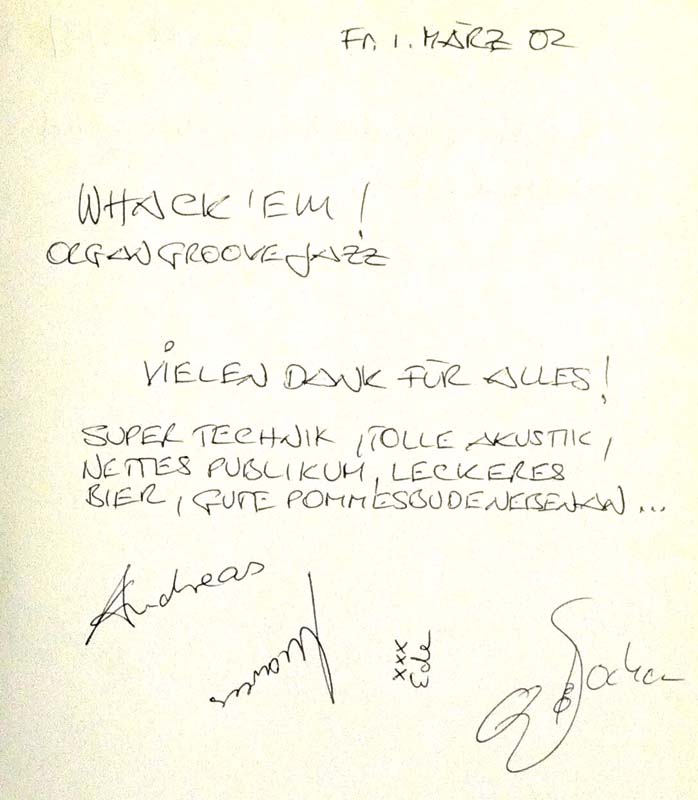 Fr. 1. MÄRZ 02
WHACK 'EM!
ORGANGROOVEJAZZ
VIELEN DANK FÜR ALLES!
SUPER TECHNIK, TOLLE AKUSTIK,
NETTES PUBLIKUM, LECKERES
BIER, GUTE POMMESBUDE NEBENAN...
Andreas
Marcus
xxx
Ede
Jochen